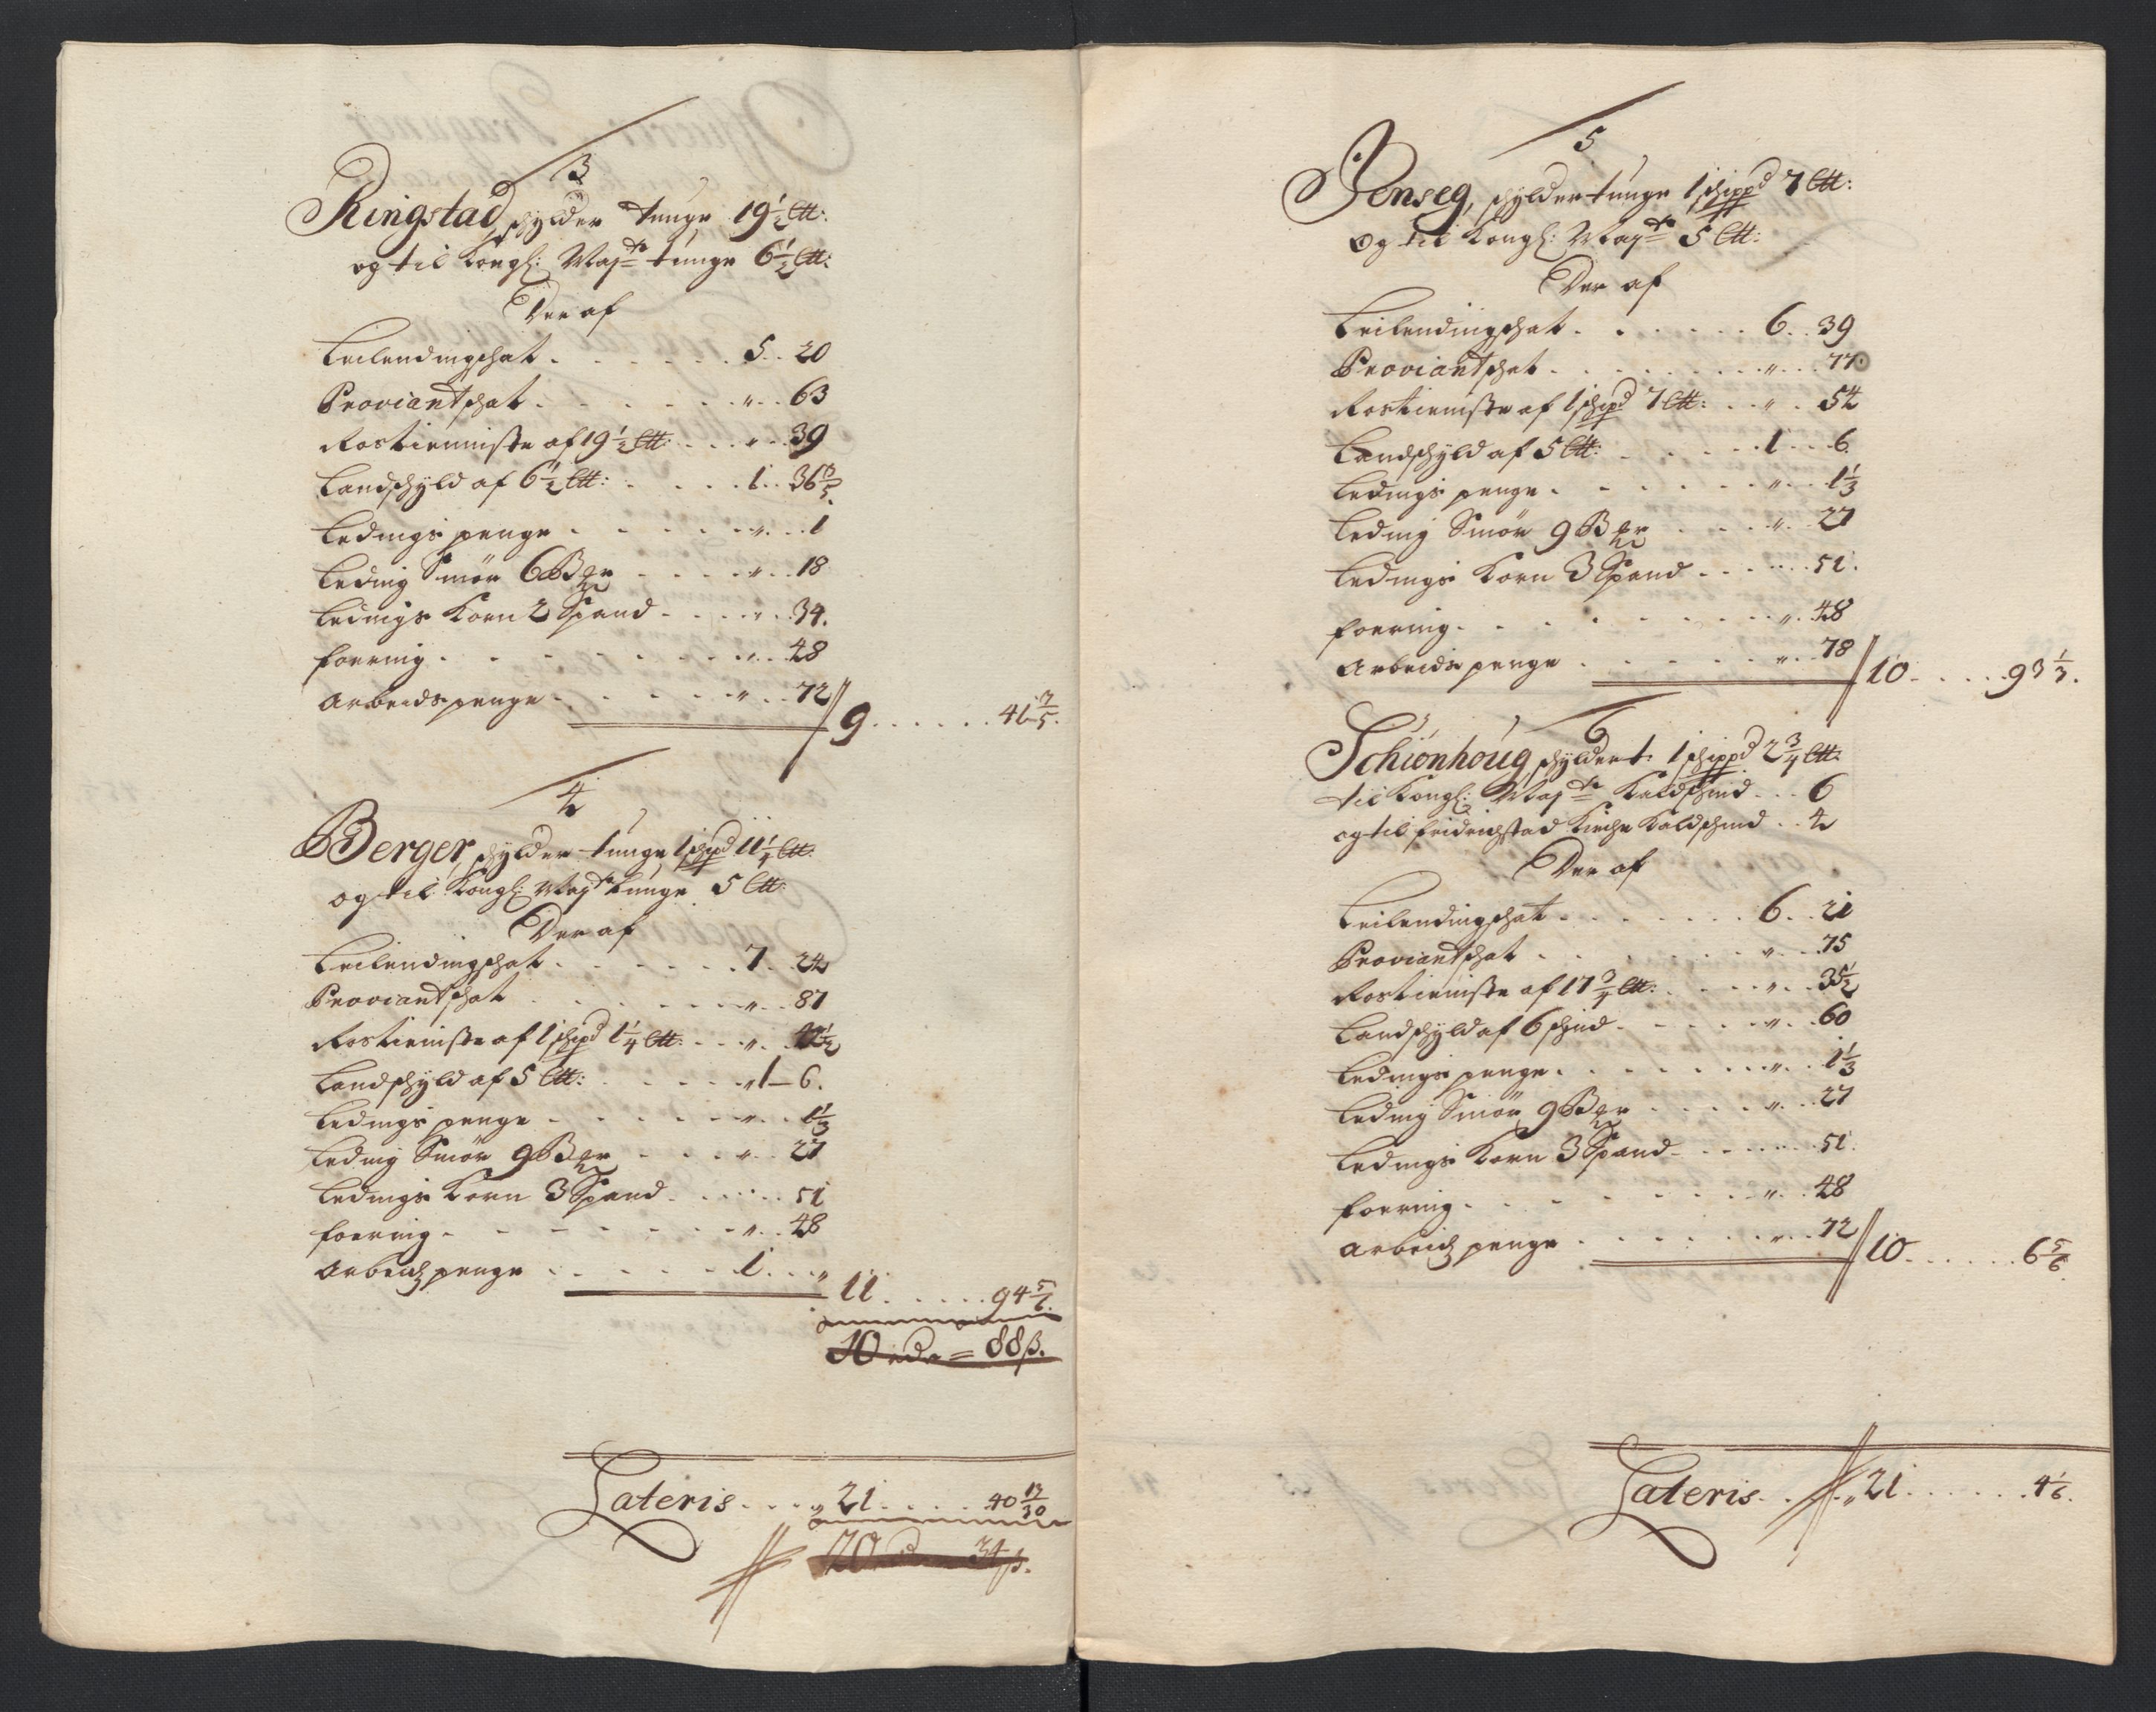 3
Ringstad, schylder tunge 19½ ℔:
og til Kongl: Maj<sup>ts</sup> tunge 6½ ℔:
Der af
Leilendingschat . . . 5 . . 20
Proviantschat . . . „ . . 63
Rostienniste af 19½ ℔: . . . „ . . 39
Landschyld af 6½ ℔: . . . 1 . . 36
Ledings penge . . . „ . . 1
Leding Smör 6 B . . . „ . . 18
Ledings Korn 2 Spand . . . „ . . 34.
foering . . . „ . . 48
Arbeids penge . . . „ . . 72 // 9 . . . 41
4
Berger, schylder tunge 1 schpd 11¼ ℔:
og til Kongl: Maj<sup>ts</sup> tunge 5 ℔:
Der af
Leilendingschat . . . 7 . . 24
Proviantschat . . . „ . . 87
Rostieniste af 1 schpd 1¼ ℔: . . . „ . .
Landschyld af 5 ℔: . . . „ 1 – 6.
Ledings penge . . . „ . . 1⅓
Leding Smör 9 B . . . „ . . 27
Ledings Korn 3 Spand . . . 51
foering . . . „ . . 48
Arbeids penge . . . 1 . . „ 11 . . . 94⅚.
10 rdr = 88 ß.
Lateris . . . „ 21 . . . 40 17/30
20 rd 34 ß.
5
Jenseg, schylder tunge 1 schippd 7 ℔:
og til Kongl: Maj<sup>ts</sup> 5 ℔:
Der af
Leilendingschat . . . 6 . . 39
Proviantschat . . . „ . . 77
Rostieniste af 1 schpd 7 ℔: . . „ . 54
Landschyld af 5 ℔: . . . 1 . . 6.
Ledings penge . . . „ . . 1⅓
Leding Smör 9 B . . . „ . . 27
Ledings Korn 3 Spand . . . 51.
foering . . . „ . . 48
Arbeids penge . . . „ . . 78 // 10 . . . 93⅓.
6
Schionhoug, schylder t. 1 schippd 2¾ ℔:
til Kongl: Maj<sup>ts</sup> Kaldschind . . 6
og til fridrichstad Kirche Kaldschind . . 4
Der af
Leilendingschat . . . 6 . . 21
Proviantschat . . . „ . . 75
Rostieniste af 17¾ ℔: . . . „ . . 35½
Landschyld af 6 schind . . . „ . . 60
Ledings penge . . . „ . . 1⅓
Leding Smör 9 B . . . „ . . 27
Ledings Korn 3 Spand . . . 51.
foering . . . „ . . 48
Arbeids penge . . . „ . . 72 // 10 . . . 6⅚.
Lateris . . // „ 21 . . . 4⅙.